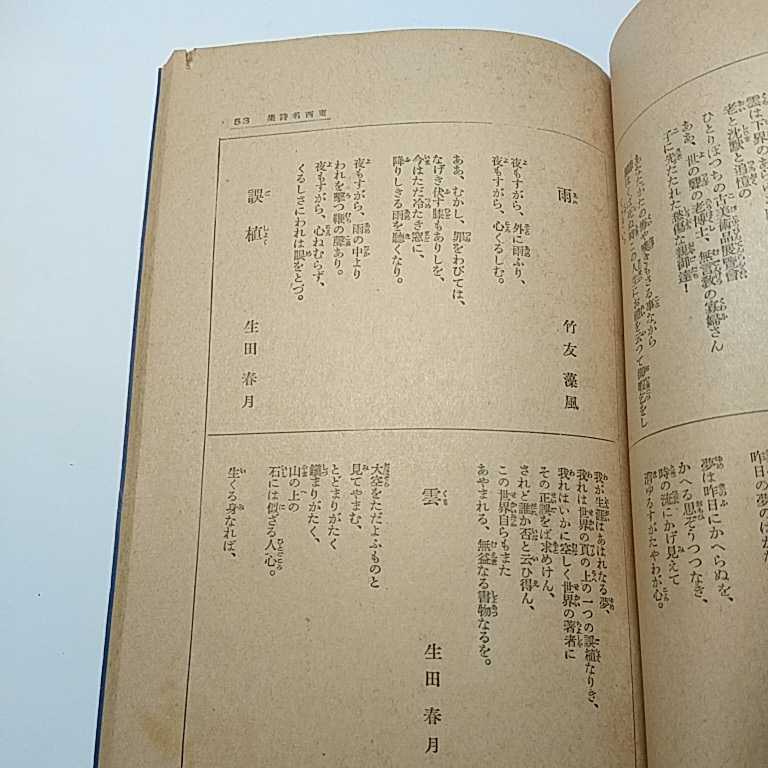 雲は下界のあらゆる
老と沈默と追憶の
ひとりぼつちの古美術品展覽會
ああ、世の聾の老博士、無言教の寡婦さん
子に先だたれた
夢は昨日にかへらぬを、
かへる思ぞうつつなき、
時の流にかげ見えて
消ゆるすがたやわが心。
53 東西名詩集
雨
竹友藻風
夜もすがら、外に雨ふり、
夜もすがら、心くるしむ。
ああ、むかし、罪をわびては、
なげき伏す膝もありしを、
今はただ冷たき窓に、
降りしきる雨を聽くなり。
夜もすがら、雨の中より
われを撃つ鞭の聲あり。
夜もすがら、心ねむらず、
くるしさにわれは眼をとづ。
誤植
生田春月
我が生涯はあはれなる夢、
我れは世界の頁の上の一つの誤植なりき、
我れはいかに空しく世界の著者に
その正誤をば求めけん、
されど誰か否と云ひ得ん、
この世界自らもまた
あやまれる、無益なる書物なるを。
雲
生田春月
大空をただよふものと
見てやまむ、
とどまりがたく
鎭まりがたく、
山の上の
石には似ざる人心。
生くる身なれば、